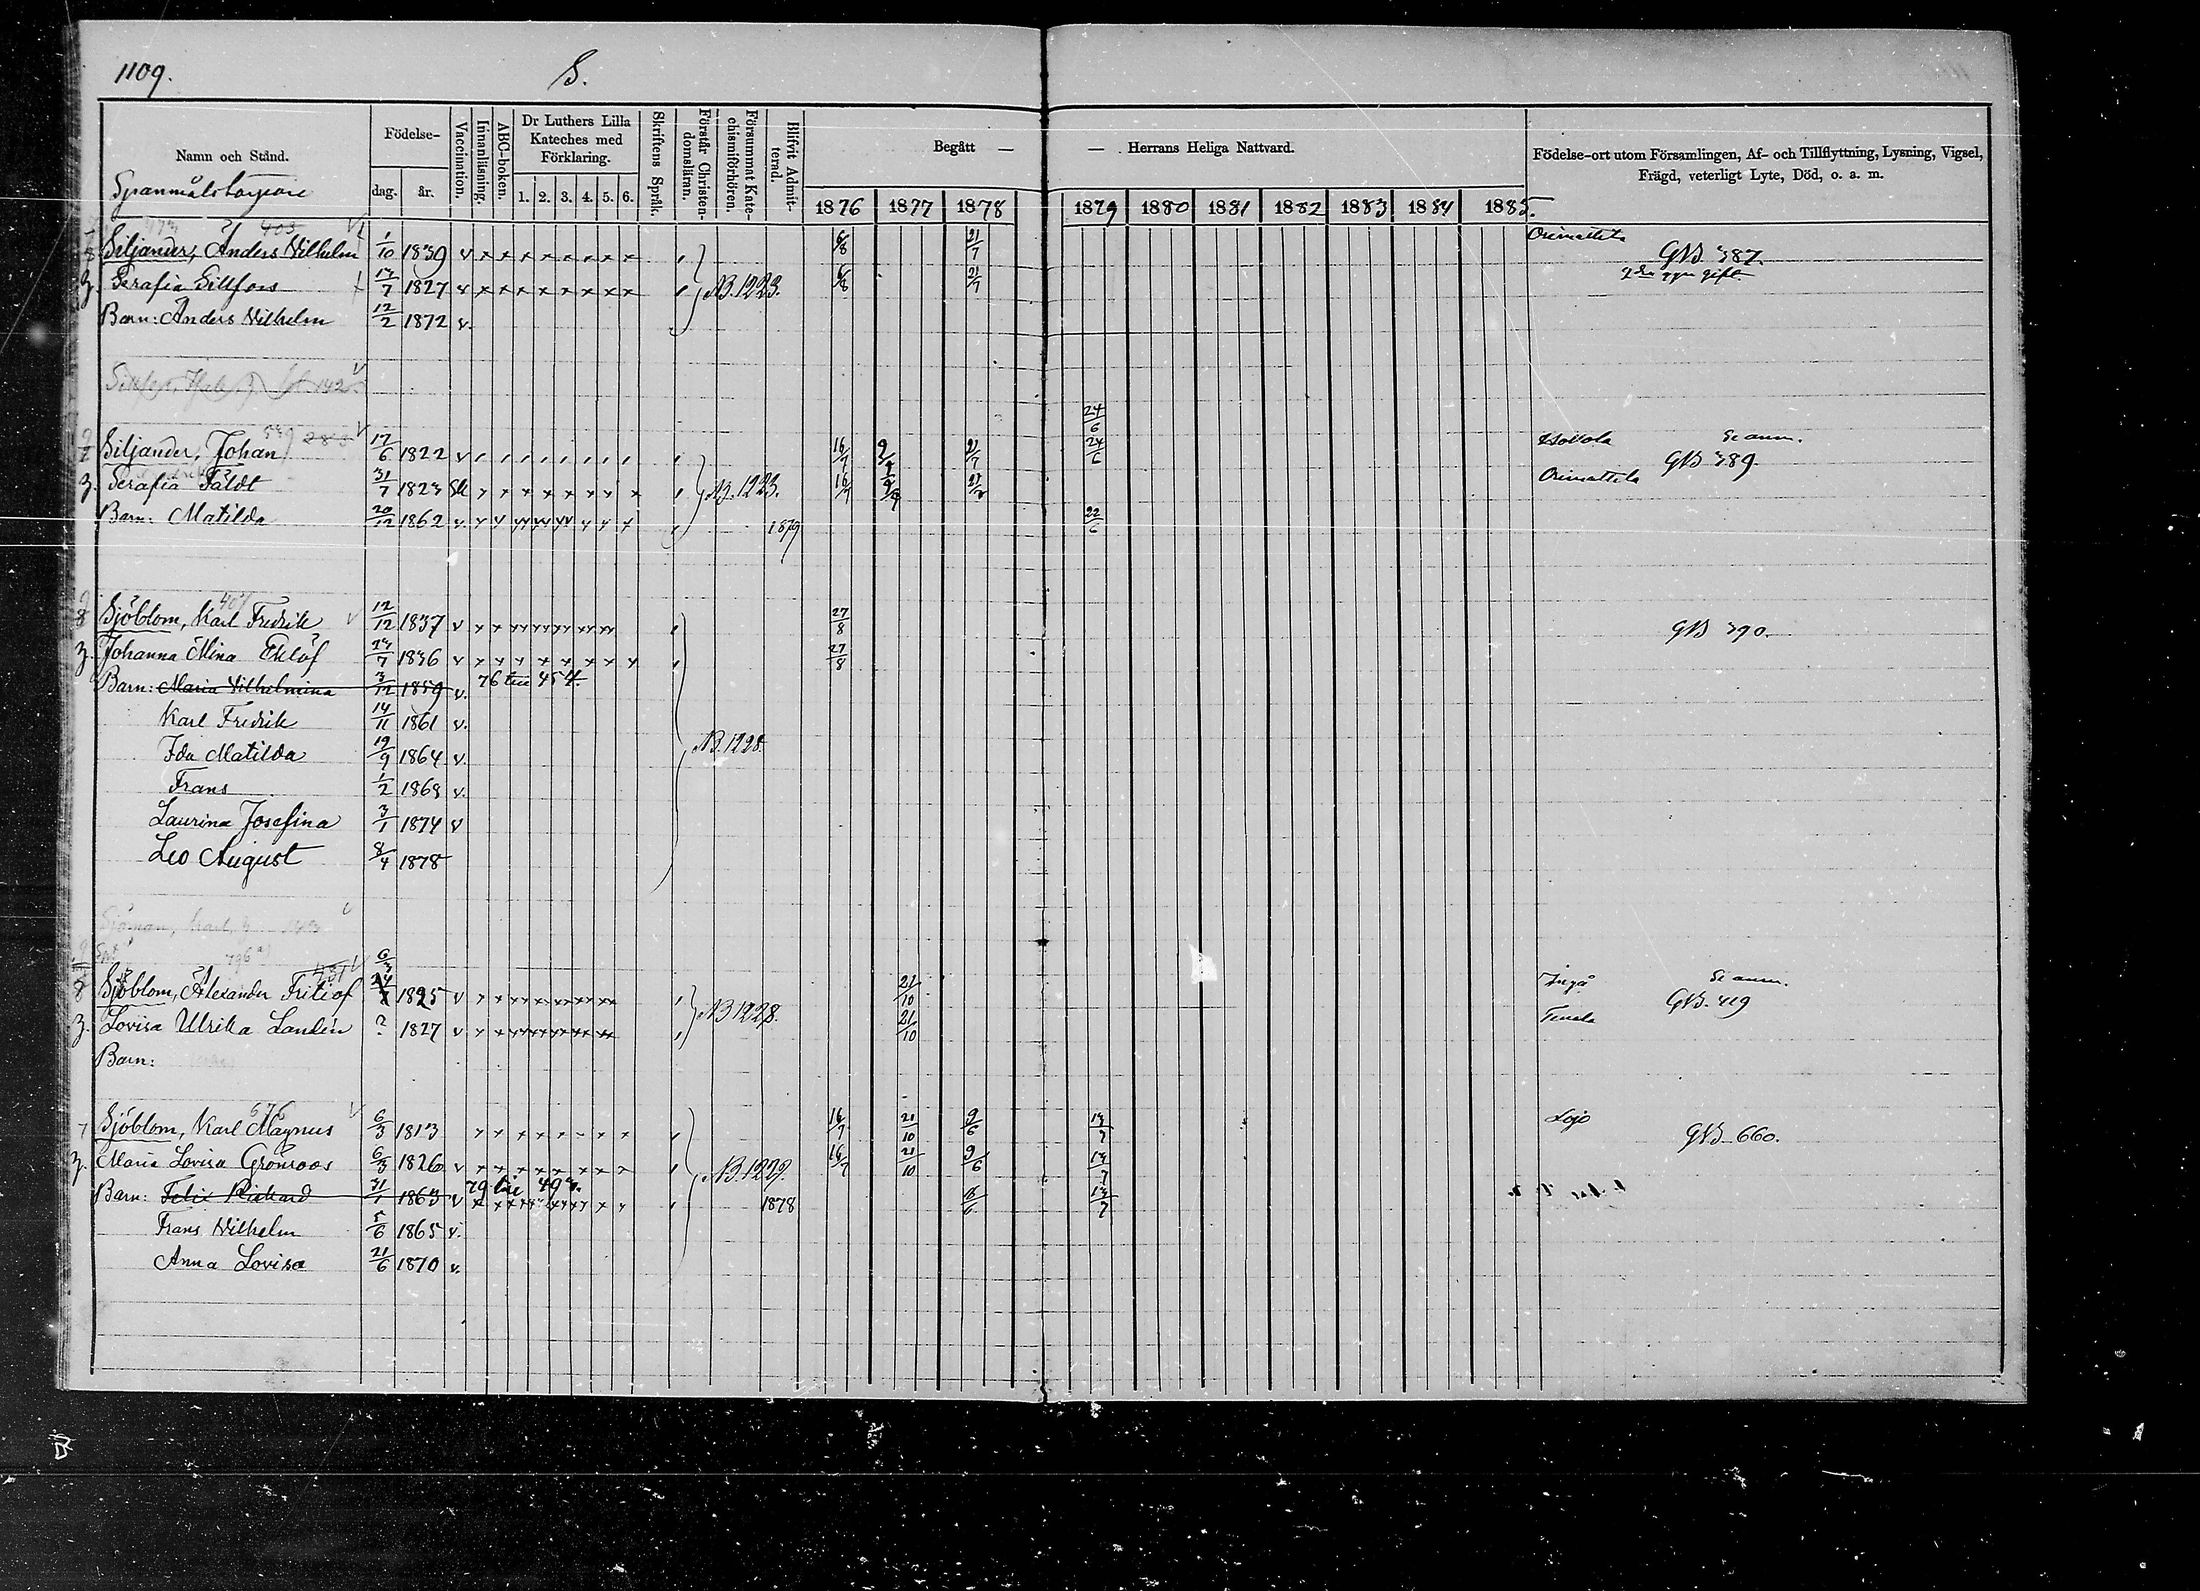 1109.
S.
Namn och Stånd.
Födelse-
dag. år.
Vaccination.
Innanläsning.
ABC-boken.
Dr Luthers Lilla Kateches med Förklaring.
1. 2. 3. 4. 5. 6.
Skriftens Språk.
Förstår Christendomsläran.
Försummat Katechismiförhören.
Blifvit Admitterad.
Begått — — Herrans Heliga Nattvard.
1876 1877 1878 1879 1880 1881 1882 1883 1884 1885.
Födelse-ort utom Församlingen, Af- och Tillflyttning, Lysning, Vigsel,
Frägd, veterligt Lyte, Död, o. a. m.
Spanmålstorpare
403
Siljander, Anders Vilhelm 1/10 1839 v x x x x x x x x 6/8 21/7 Orimattila GB 387.
Serafia Sillfors 1827 v x x x x x x x x NB. 1223. 6/8 21/7 2dra ggn gift.
Barn: Anders Vilhelm 12/2 1872 v.
24/6
Siljander, Johan 17/6 1822 v 16/7 21/7 24/6 Hollola Se anm. GB 389.
Serafia Påldt 31/7 1823 NB. 1223. 16/7 21/7 Orimattila
Barn: Matilda 20/12 1862 v. 1879 22/6
Sjöblom, Karl Fredrik 12/12 1837 v 27/8 GB 390.
Johanna Mina Eklöf 1836 v 27/8
Barn: Maria Vilhelmina 3/12 1859 v. 76 till 454.
Karl Fredrik 14/11 1861 v.
Ida Matilda 19/9 1864 v. NB. 1228.
Frans 1/2 1868 v.
Laurina Josefina 3/1 1874 v
Leo August 8/4 1878
Sjöblom, Alexander Fritiof 1825 v 21/10 Ingå Se anm. GB. 419
Lovisa Ulrika Landén ? 1827 v NB 1228. 21/10 Tenala
Barn:
676
Sjöblom, Karl Magnus 6/3 1813 16/7 21/10 9/6 13/7 Lojo GB 660.
Maria Lovisa Grönroos 6/3 1826 v NB. 1229. 16/7 21/10 9/6 13/7
Barn: Felix Rickard 31/1 1863 v 79 till 493. 1878 13/7
Frans Vilhelm 5/6 1865 v.
Anna Lovisa 21/6 1870 v.